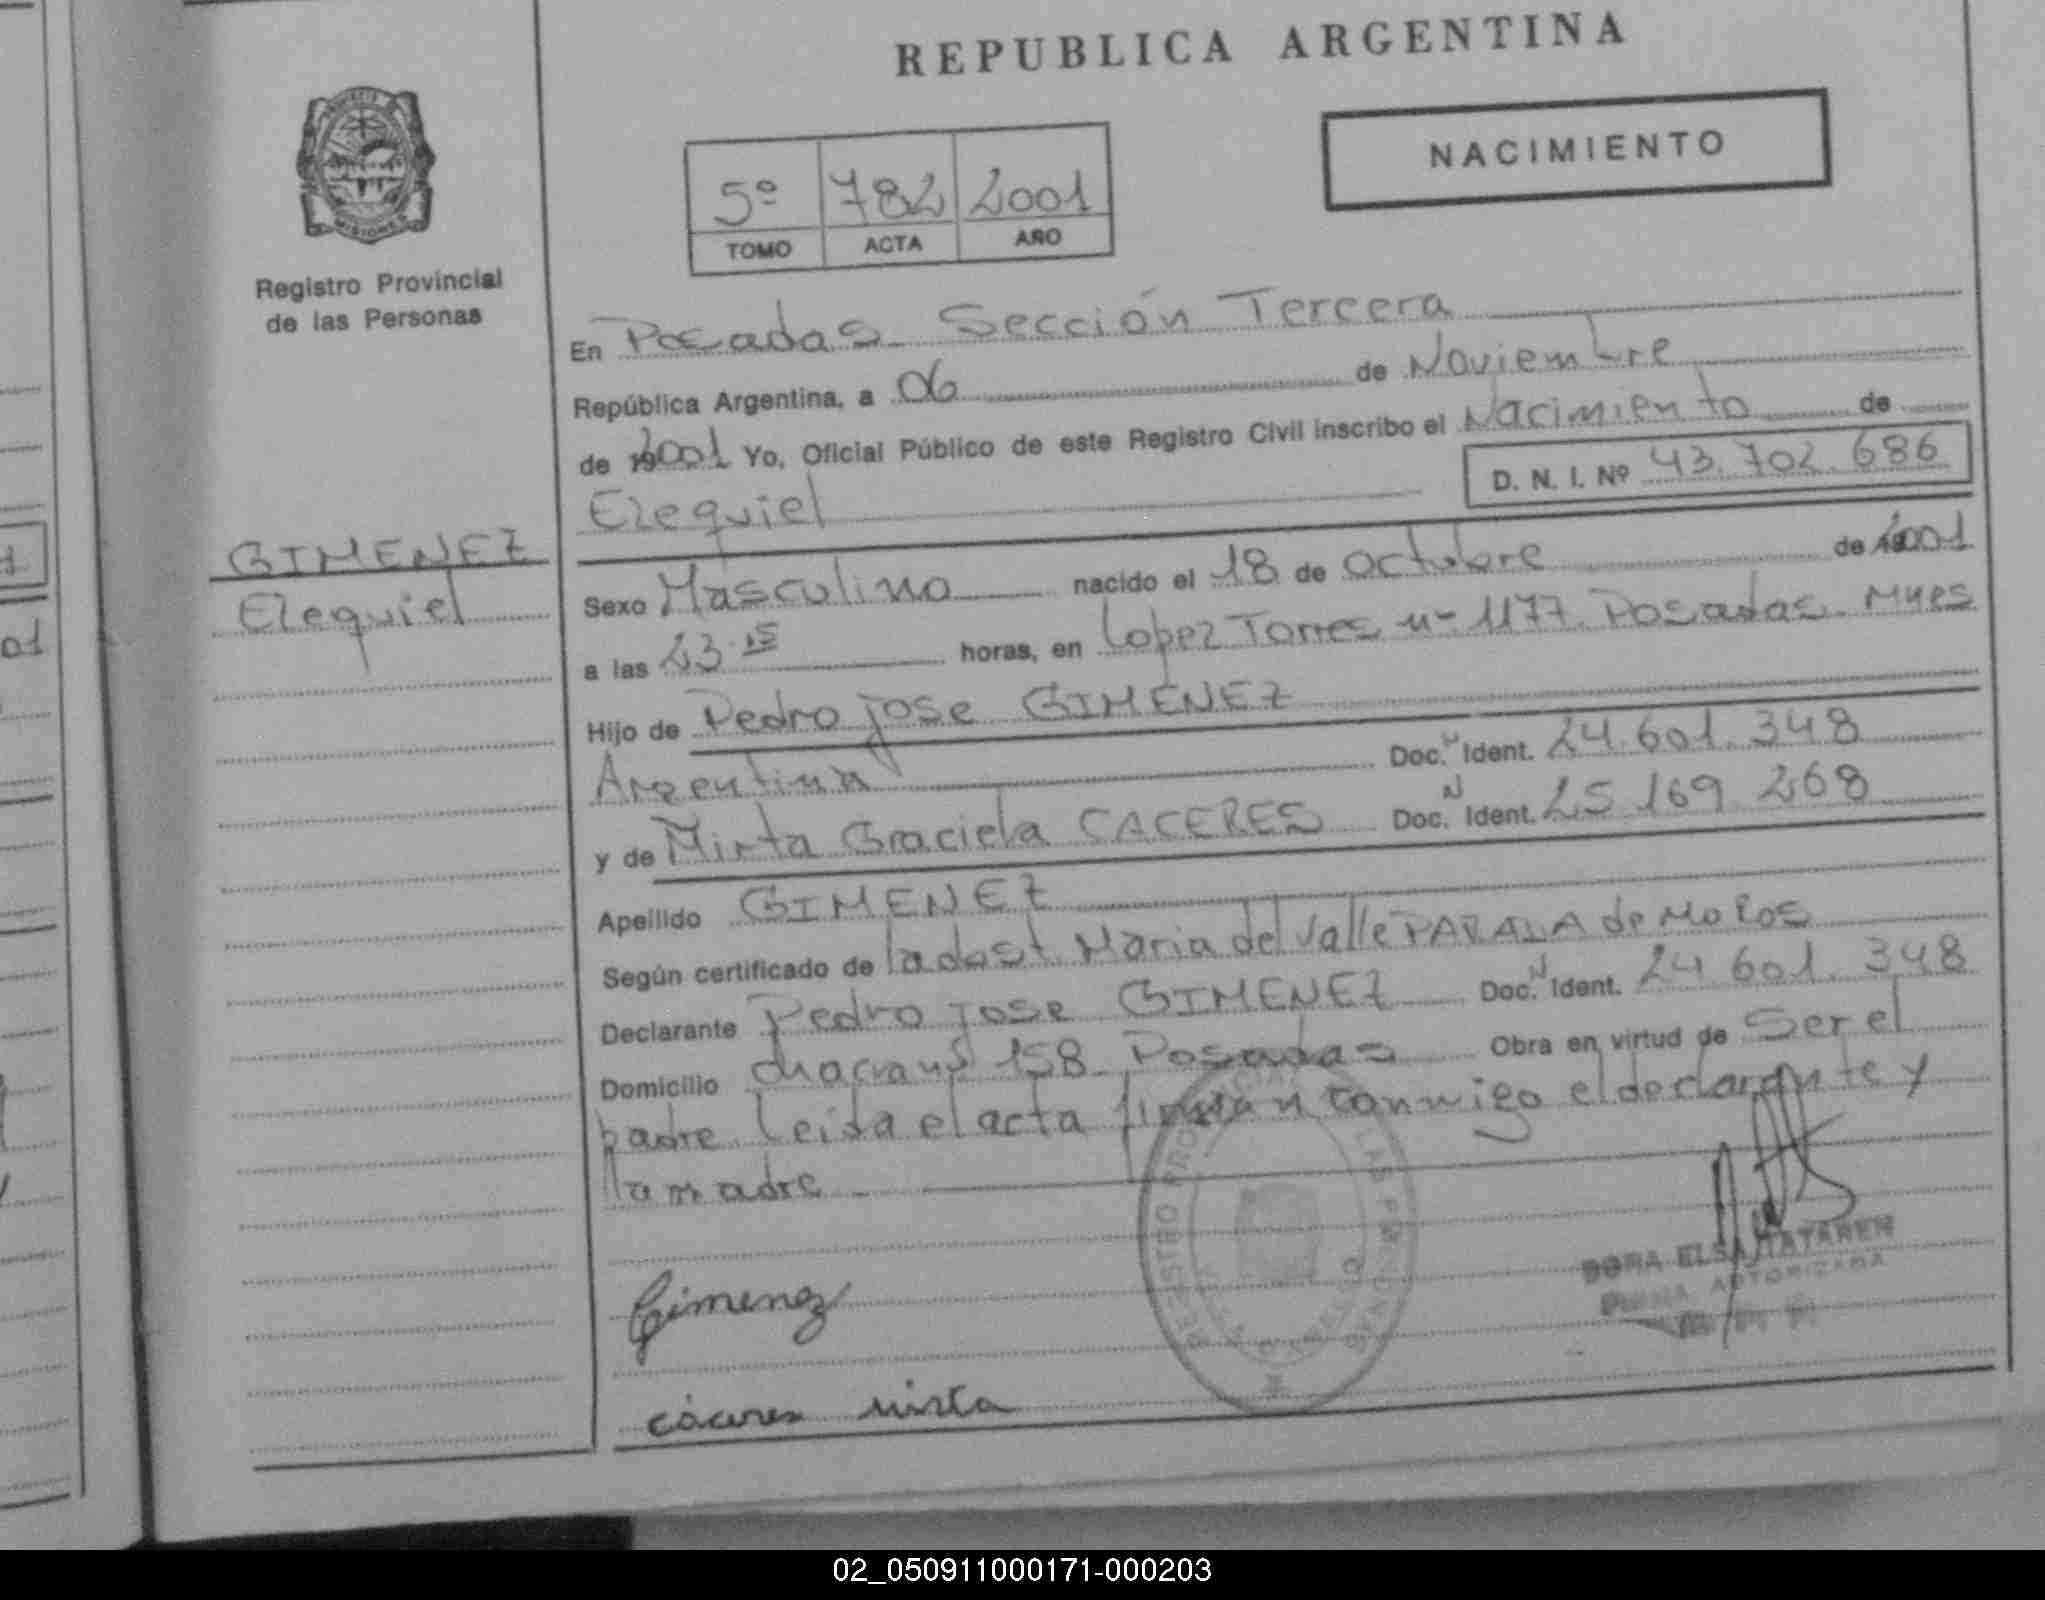 REPUBLICA ARGENTINA
NACIMIENTO
5º 782 2001
TOMO ACTA AÑO
MISIONES
Registro Provincial
de las Personas
En Posadas Sección Tercera
República Argentina, a 06 de Noviembre
de 2001 Yo, Oficial Público de este Registro Civil inscribo el Nacimiento de
D. N. I. Nº 43.702.686
Ezequiel
GIMENEZ
Ezequiel
Sexo Masculino nacido el 18 de octubre de 2001
a las 23.15 horas, en Lopez Torres nº 1177. Posadas Mnes
Hijo de Pedro jose GIMENEZ
Argentina Doc. N Ident. 24.601.348
y de Mirta Graciela CACERES Doc. N Ident. 25.169.268
Apellido GIMENEZ
Según certificado de la dost. Maria del Valle de MoRos
Declarante Pedro jose GIMENEZ Doc. N Ident. 24.601.348
Domicilio chacra nº 158 Posadas Obra en virtud de Ser el
padre. Leida el acta firman conmigo el declarante y
la madre
Gimenez
cáceres mirta
DORA ELSA
FIRMA AUTORIZADA
REGISTRO PROVINCIAL DE LAS PERSONAS
02_050911000171-000203